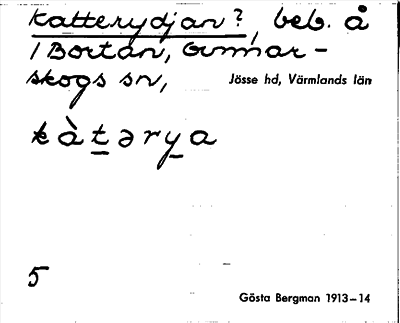 Katterydjan?, beb. å
1 Bortan, Gunnar-
skogs sn, Jösse hd, Värmlands län
kàtərya
5
Gösta Bergman 1913–14